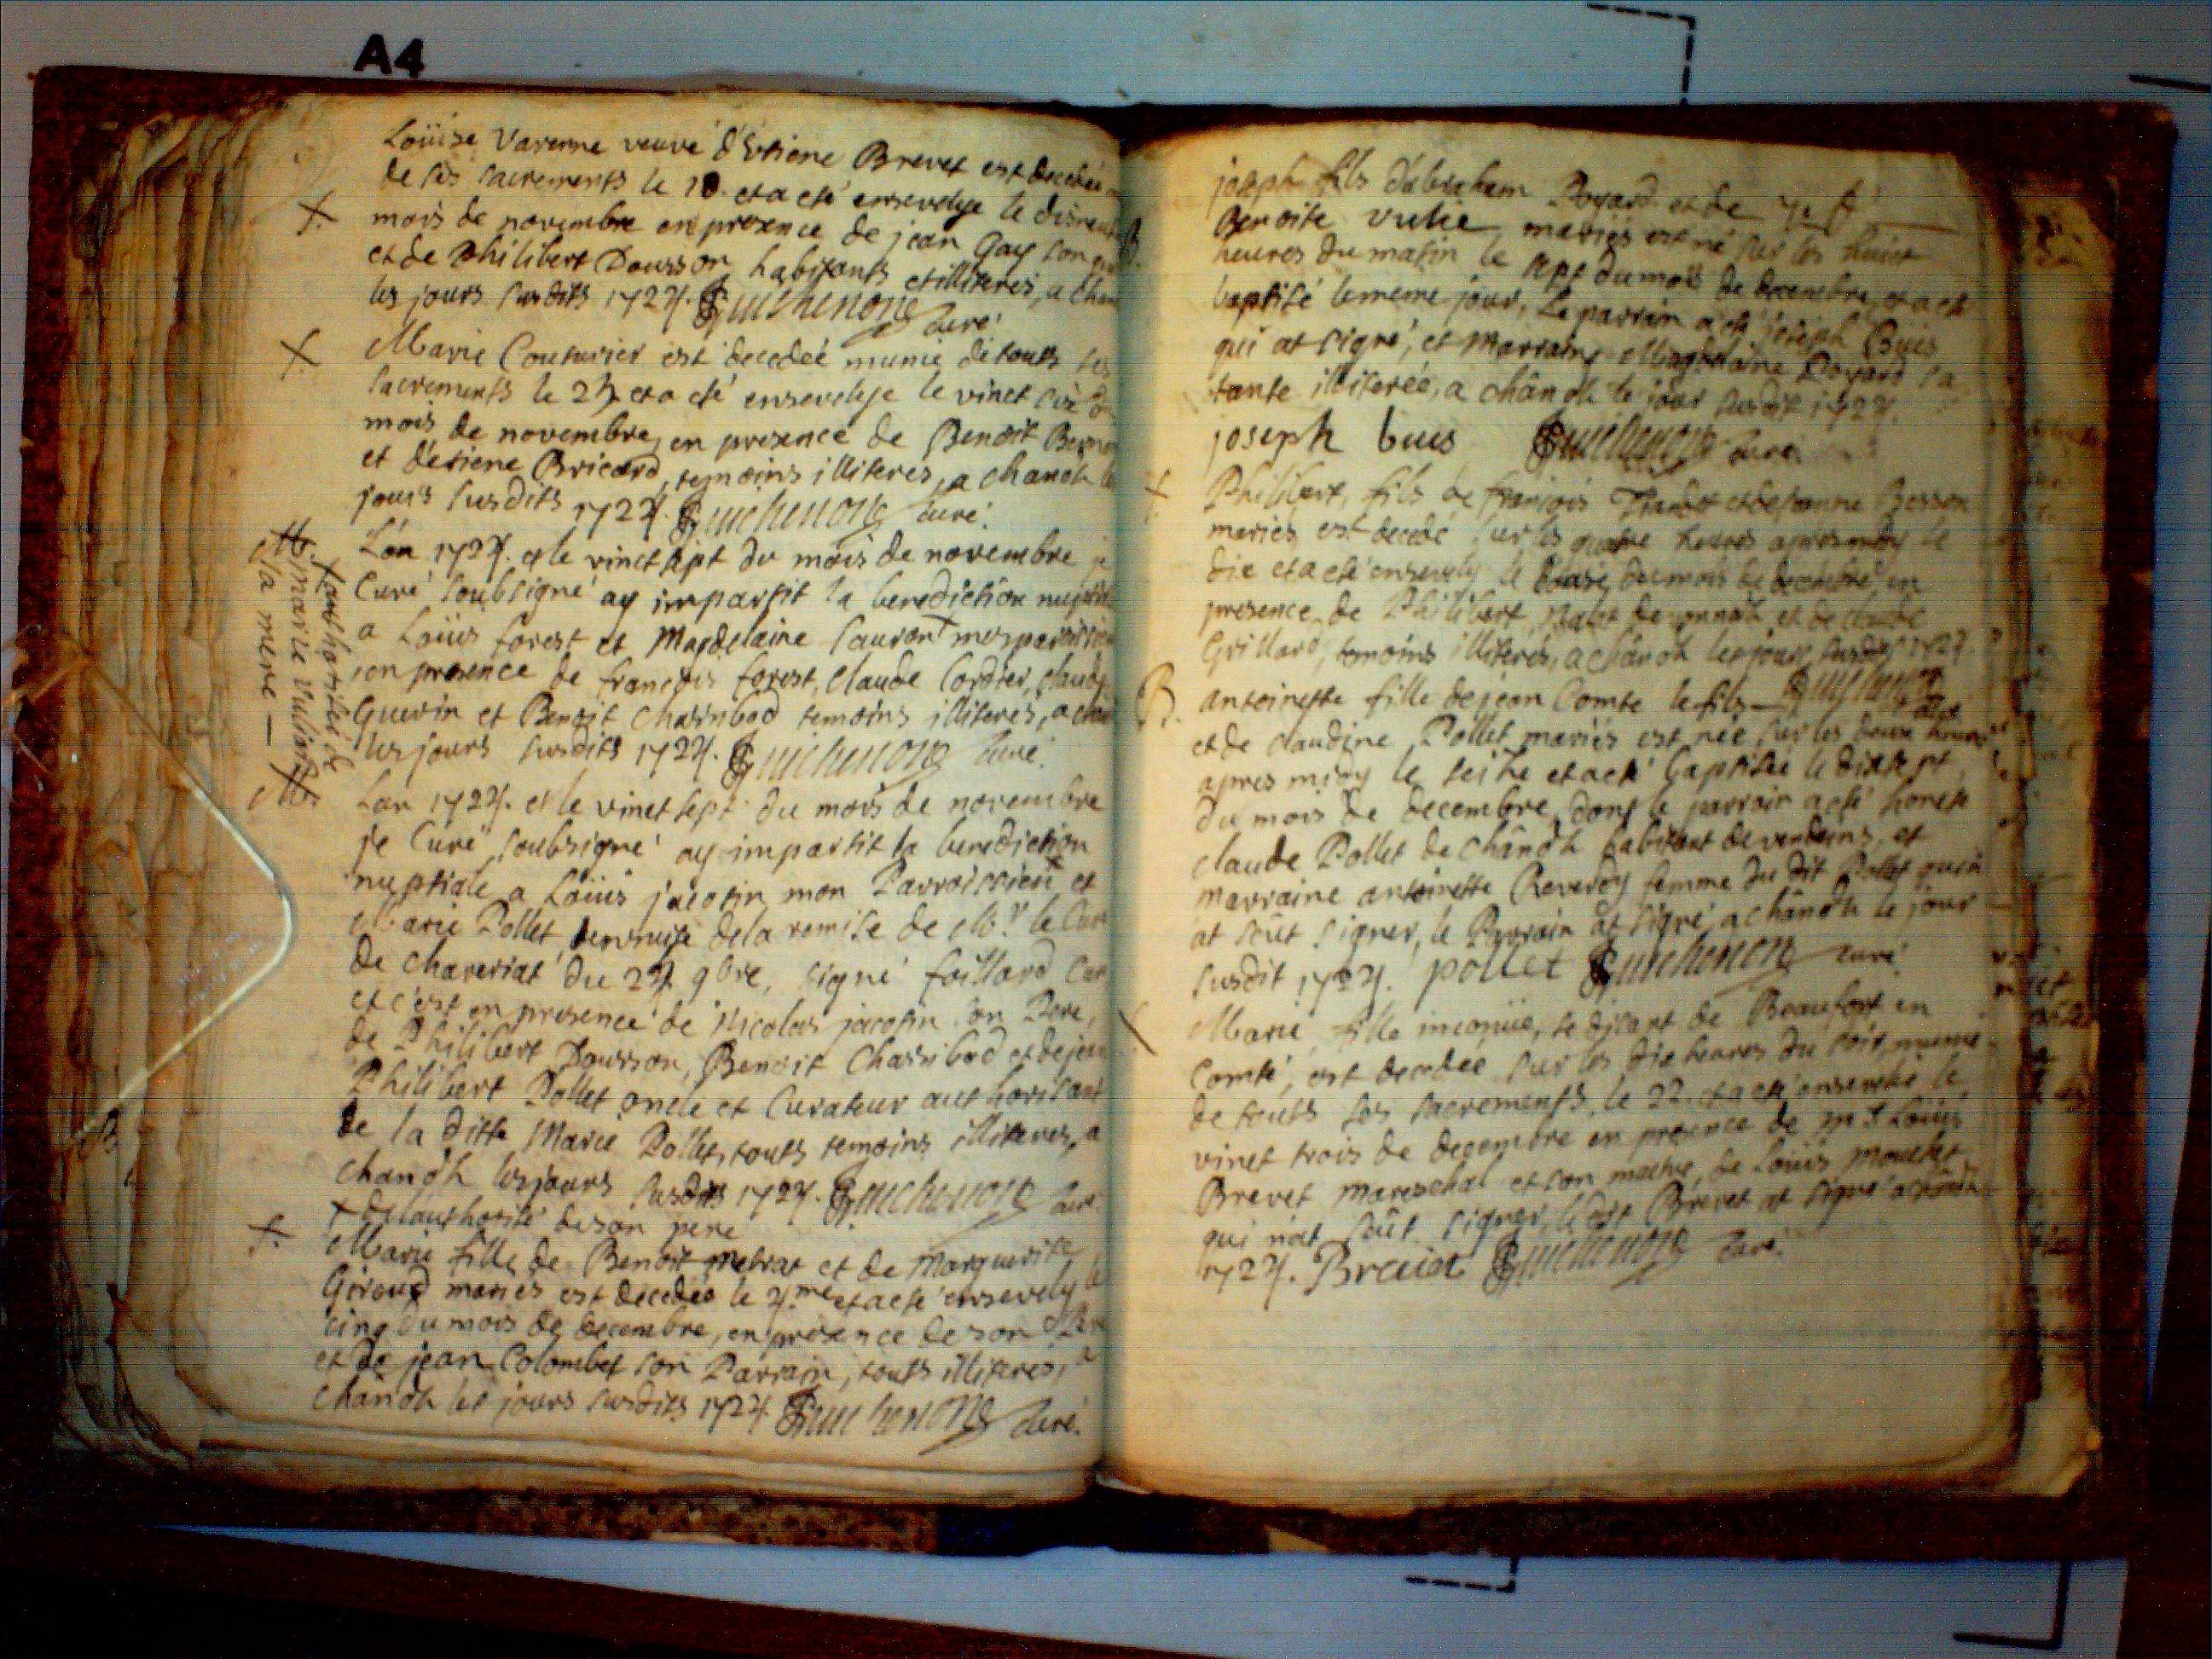 A4
Loüise Varenne veuve d'Etiene Brevet est decedée
de ses sacrements le 18. et a eté ensevelye le disneuf
mois de novembre en presence de jean Gay son
et de Philibert Dousson habitants et illiterés, a chan
les jours susdits 1724. Guichenon curé
Marie Couturier est decedeé munie de touts ses
sacrements le 25 et a eté ensevelye le vinct six d
mois de novembre, en presence de Benoit
et d'etiene Bricard, temoins illiteres, a chanoh le
jours susdits 1724. Guichenon curé.
L'an 1724. et le vinct sept du mois de novembre je
Curé soubsigné ay impartit la benediction nuptia
a Loüis forest et Magdelaine Lauront + mes paroissiens
en presence de françois forest, claude Cordier, claude
Guerin et Benoit Chassibod temoins illiteres, a chan
les jours susdits 1724. Guichenon Curé.
+ authorisée de
marie vulion
sa mere —
L'an 1724. et le vinct sept du mois de novembre
je Curé soubsigné ay impartit la benediction
nuptiale a Loüis jacotin mon Parroissien + et
Marie Pollet de la remise de Mr. le Cur
de chaveriat du 24 9bre, signé foillard Cur
et c'est en presence de Nicolas jacotin son Pere,
de Philibert Dousson, Benoit Chassibod et de jean
Philibert Pollet oncle et Curateur authorisant
de la ditte Marie Pollet, touts temoins illiteres, a
chanoh les jours susdits 1724. Guichenon curé
+ de l'authorité de son pere
Marie fille de Benoit metrat et de Marguerite
Giroud mariés est decedeé le 4.me et a eté ensevely le
cinq du mois de decembre, en presence de son Per
et de jean Colombet son Parrain, touts illiterés, a
chanoh les jours susdits 1724 Guichenon Curé.
joseph fils d'abraham Poyard et de
Benoite vulie mariés est né sur les huict
heures du matin le sept du mois de decembre, et a eté
baptisé le meme jour, Le parrain a eté joseph Büis
qui at signé, et Marraine Magdelaine Poyard sa
tante illiterée, a chânoh le jour susdit 1724.
joseph buis Guichenon curé.
Philibert, fils de françois et de jeanne Besson
mariés est decedé sur les quatre heures apres midy le
dix et a eté ensevely le du mois de decembre en
presence de Philibert et de claude
Grillard, temoins illiterés, a chânoh les jours susdits 1724.
B. antoinette fille de jean Comte le fils — Guichenon curé
et de claudine Pollet mariés est née sur les deux heures
apres midy le seize et a eté baptisée le dixsept
du mois de decembre, dont le parrain a eté honete
claude Pollet de chânoh habitant de vandeins, et
marraine antoinette Reverdy femme du dit Pollet qui n'
at sçût signer, le Parrain at signé, a chânoh le jour
susdit 1724. pollet Guichenon curé
Marie, fille inconüe, se disant de Beaufort en
Comté, est decedeé sur les dix heures du soir, munie
de touts ses sacrements, le 22. et a eté ensevelie le
vinct trois de decembre en presence de m.e Loüis
Brevet mareschal et son maitre, de Loüis mouchet
qui n'at sçût signer, ledit Brevet at signé a chânoh
1724. Guichenon curé.